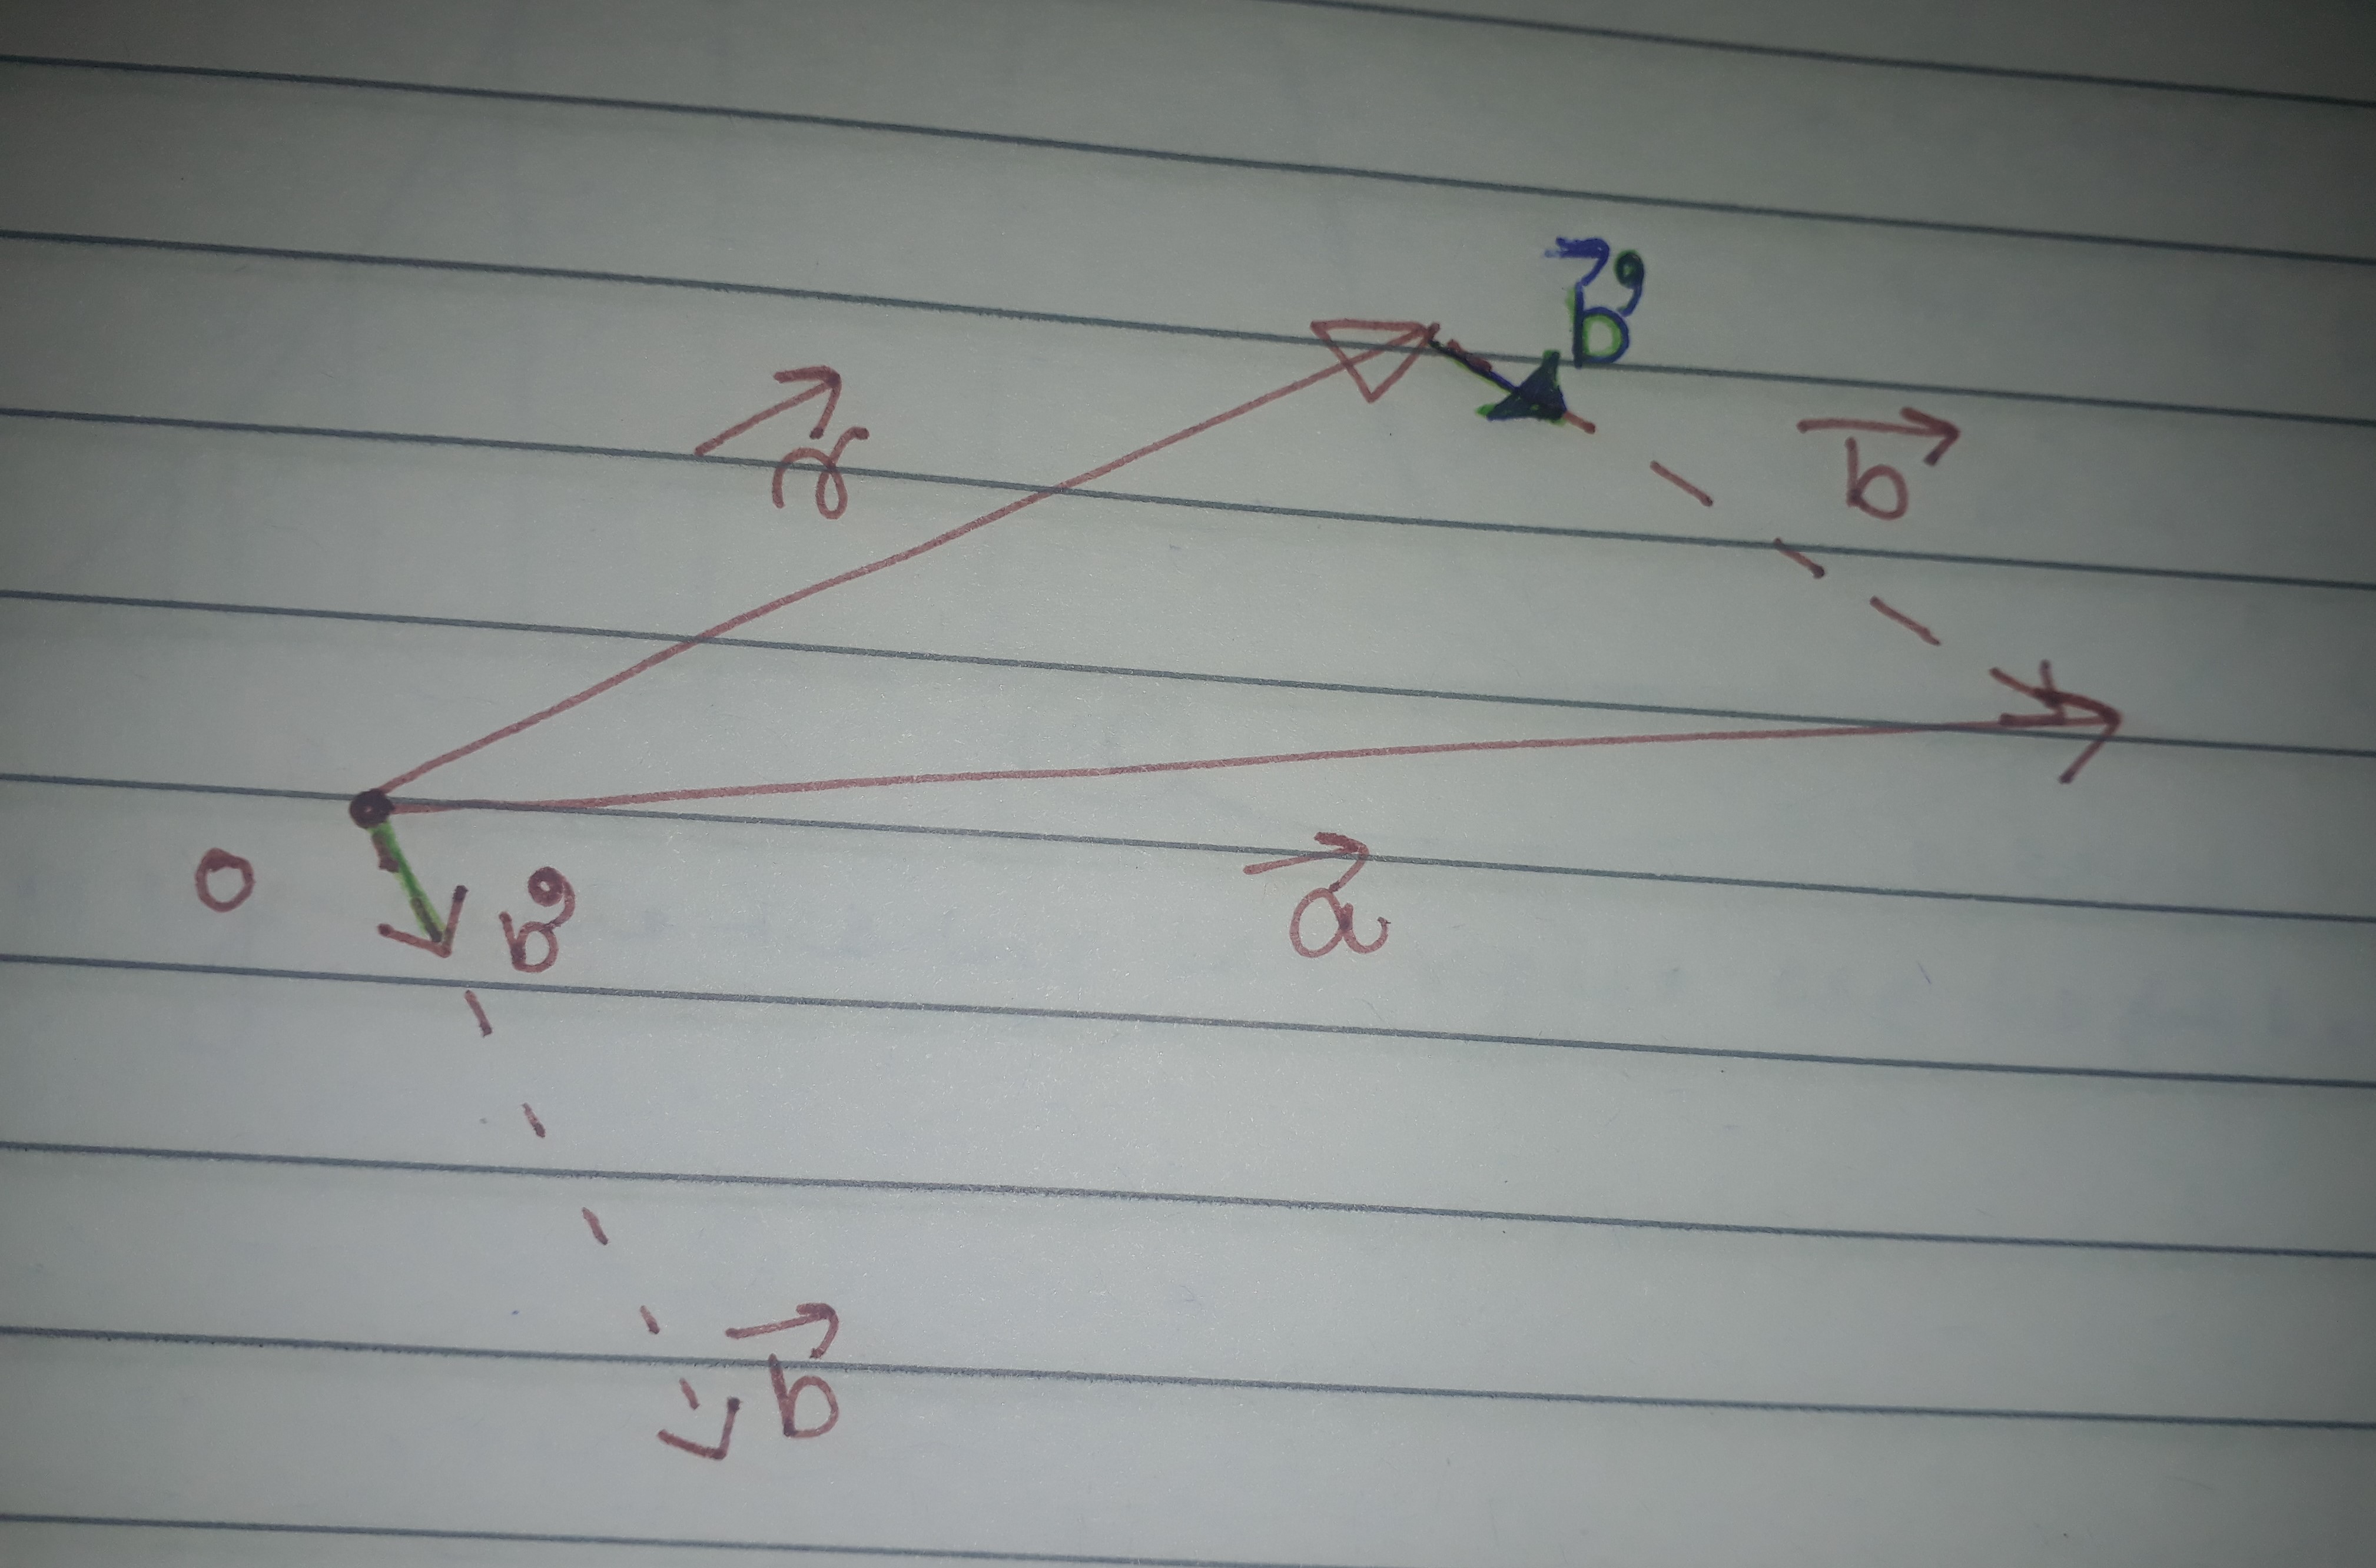 b'
r
b
o
b'
a
b